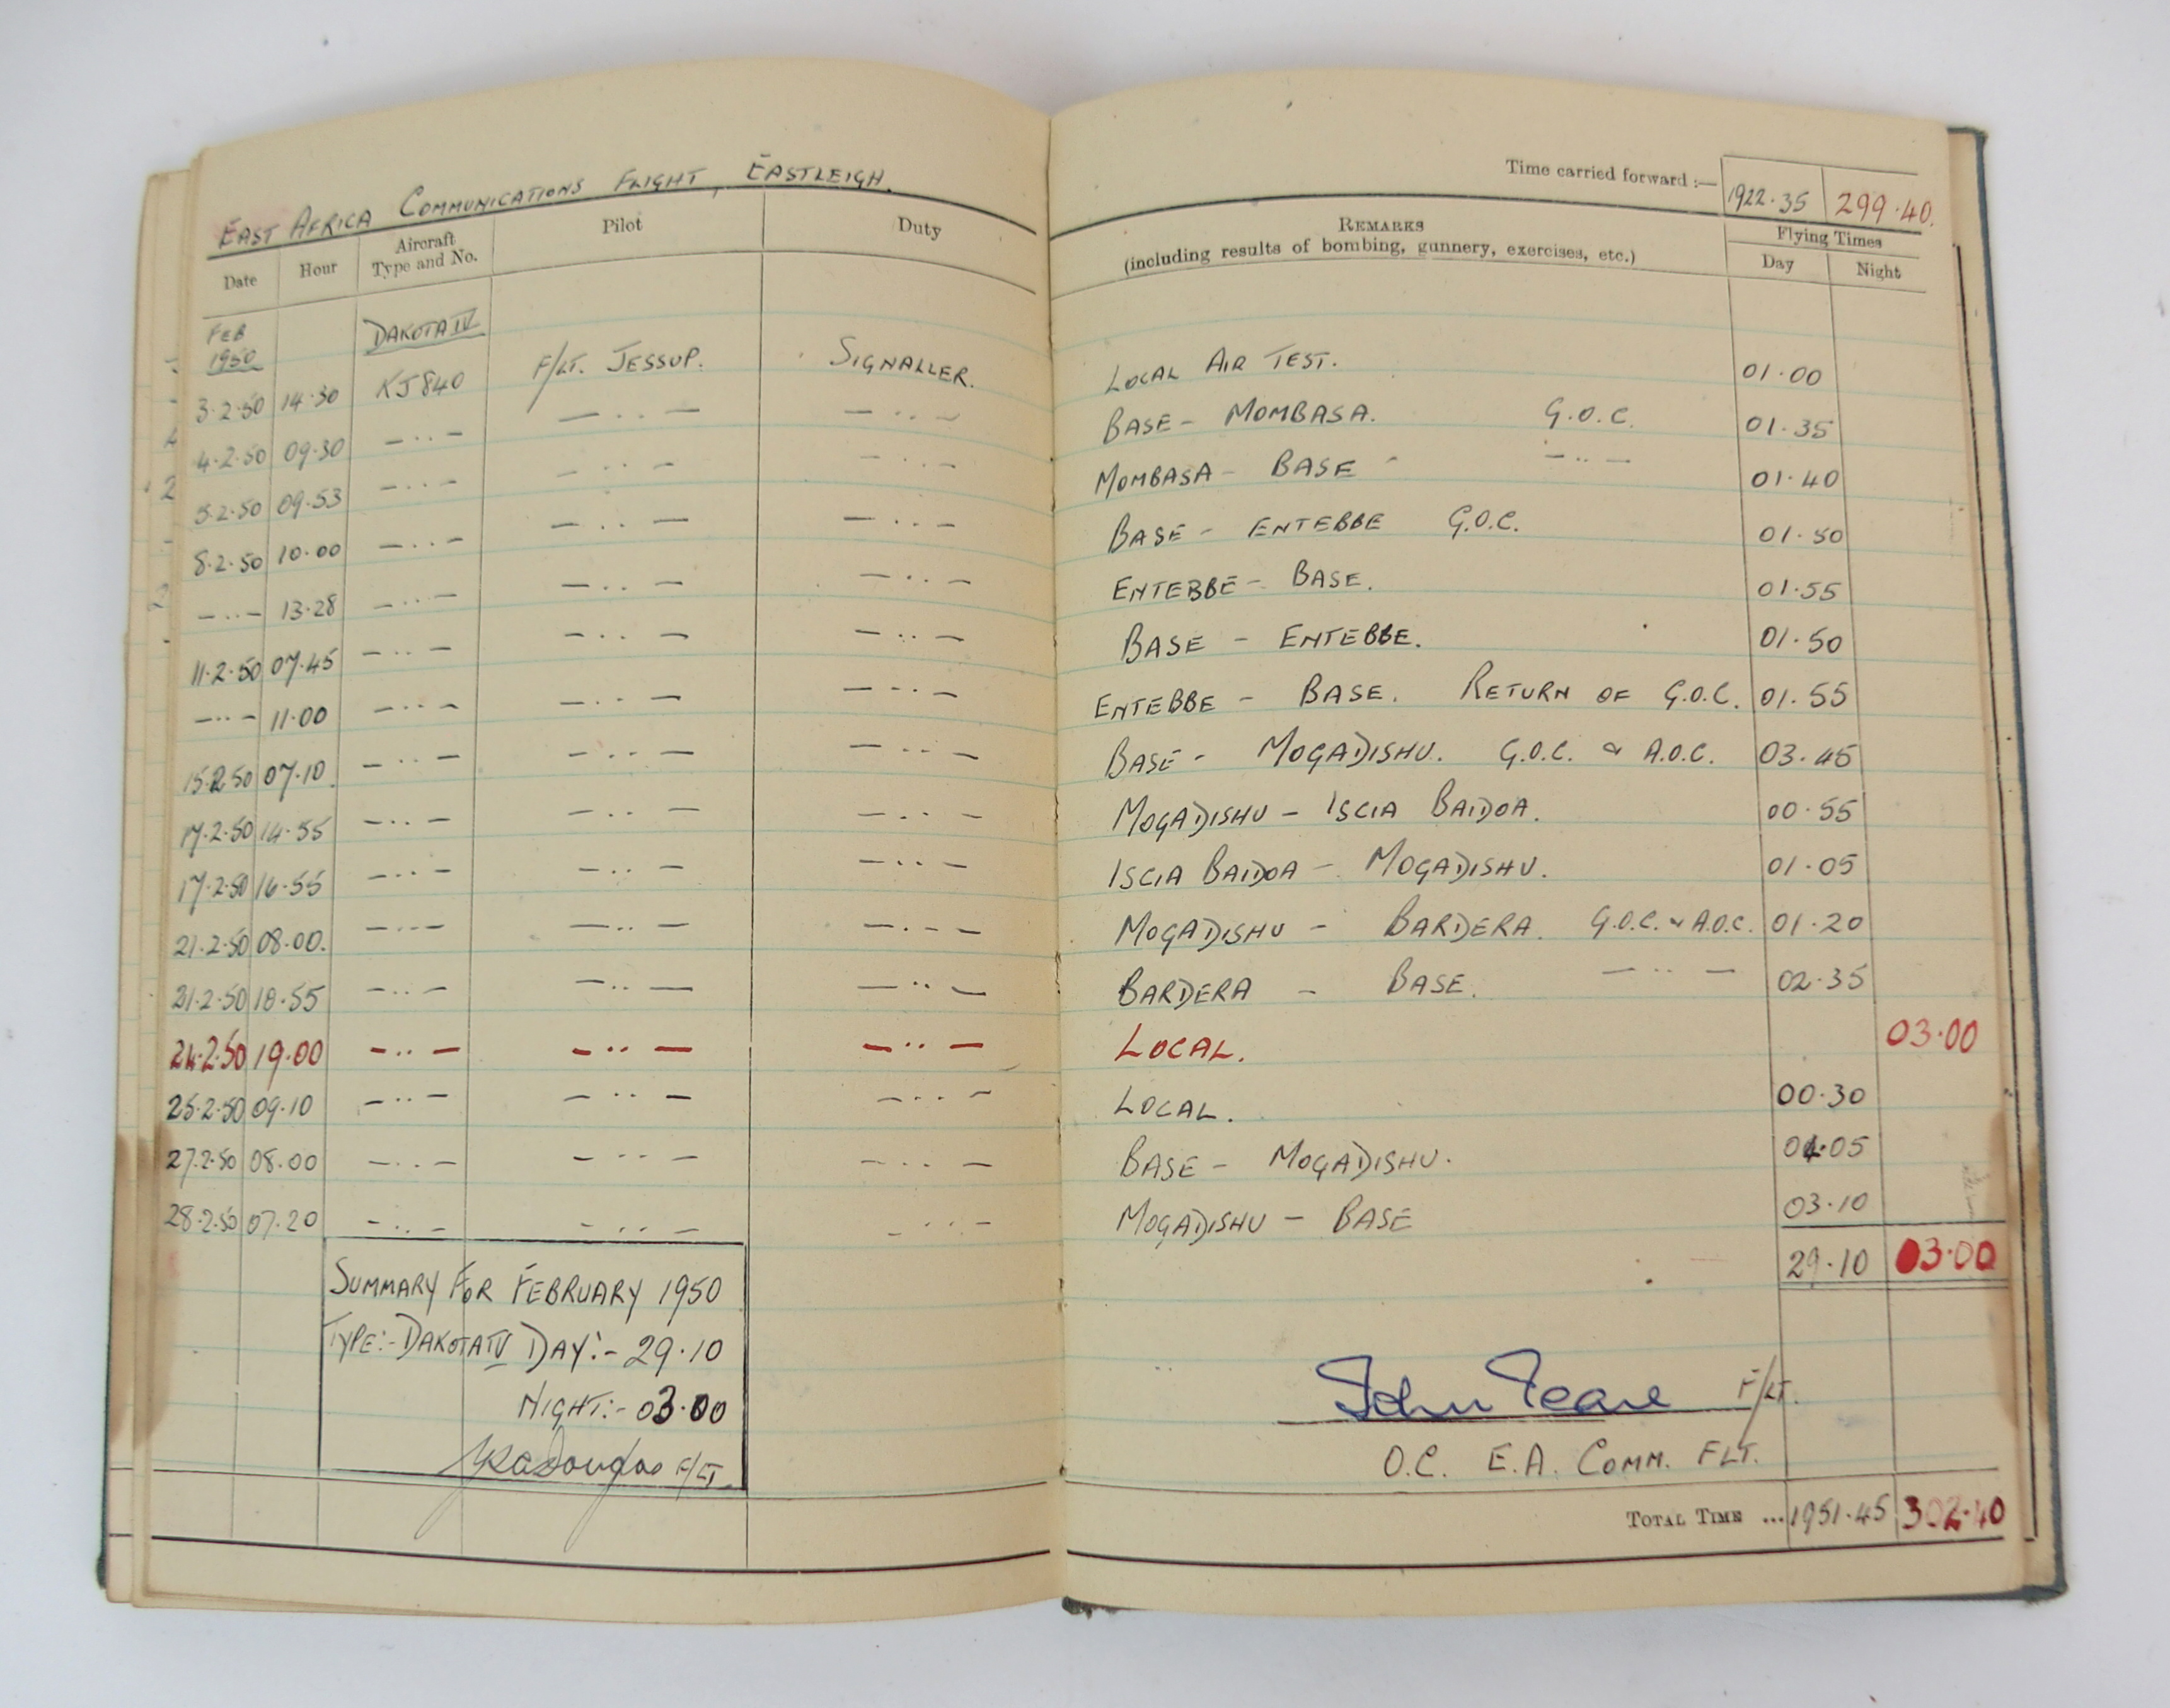 EAST AFRICA COMMUNICATIONS FLIGHT, EASTLEIGH.
Time carried forward :— 1922.35 299.40.
Date Hour Aircraft Type and No. Pilot Duty REMARKS (including results of bombing, gunnery, exercises, etc.) Flying Times Day Night
FEB 1950 DAKOTA IV
3.2.50 14.30 KJ840 F/LT. JESSUP. SIGNALLER. LOCAL AIR TEST. 01.00
4.2.50 09.30 —··— —··— —··— BASE - MOMBASA. G.O.C. 01.35
5.2.50 09.53 —··— —··— —··— MOMBASA - BASE - —··— 01.40
8.2.50 10.00 —··— —··— —··— BASE - ENTEBBE G.O.C. 01.50
—··— 13.28 —··— —··— —··— ENTEBBE - BASE. 01.55
11.2.50 07.45 —··— —··— —··— BASE - ENTEBBE. 01.50
—··— 11.00 —··— —··— —··— ENTEBBE - BASE. RETURN OF G.O.C. 01.55
15.2.50 07.10. —··— —··— —··— BASE - MOGADISHU. G.O.C. & A.O.C. 03.45
17.2.50 14.55 —··— —··— —··— MOGADISHU - ISCIA BAIDOA. 00.55
17.2.50 16.55 —··— —··— —··— ISCIA BAIDOA - MOGADISHU. 01.05
21.2.50 08.00. —··— —··— —··— MOGADISHU - BARDERA. G.O.C. & A.O.C. 01.20
21.2.50 18.55 —··— —··— —··— BARDERA - BASE. —··— 02.35
24.2.50 19.00 —··— —··— —··— LOCAL. 03.00
25.2.50 09.10 —··— —··— —··— LOCAL. 00.30
27.2.50 08.00 —··— —··— —··— BASE - MOGADISHU. 04.05
28.2.50 07.20 —··— —··— —··— MOGADISHU - BASE 03.10
29.10 03.00
SUMMARY FOR FEBRUARY 1950
TYPE:- DAKOTA IV DAY:- 29.10
NIGHT:- 03.00
F/LT.
John Teare F/LT.
O.C. E.A. COMM. FLT.
TOTAL TIME ... 1951.45 302.40